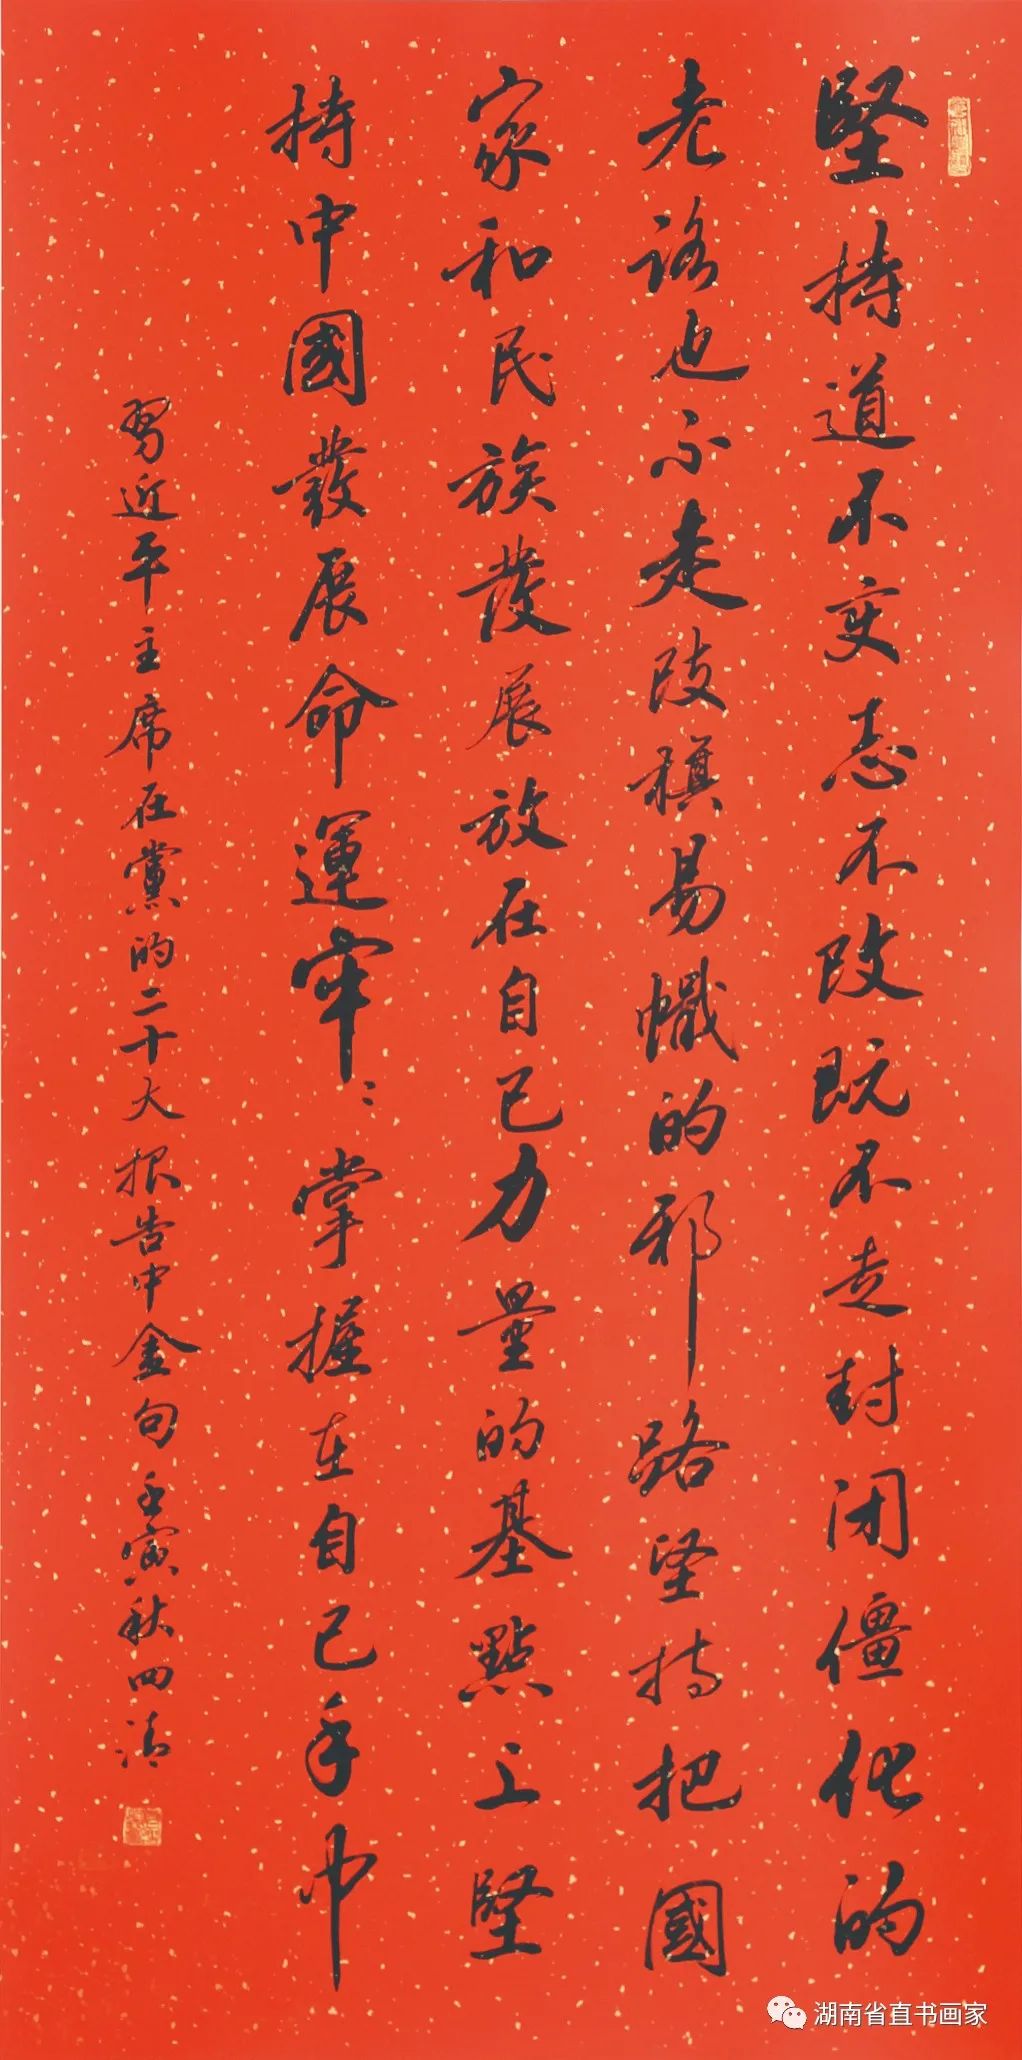 堅持道不变志不改既不走封闭僵化的
老路也不走改旗易幟的邪路坚持把國
家和民族發展放在自己力量的基點上堅
持中國發展命運牢〻掌握在自己手中
習近平主席在黨的二十大报告中金句壬寅秋四清
湖南省直书画家